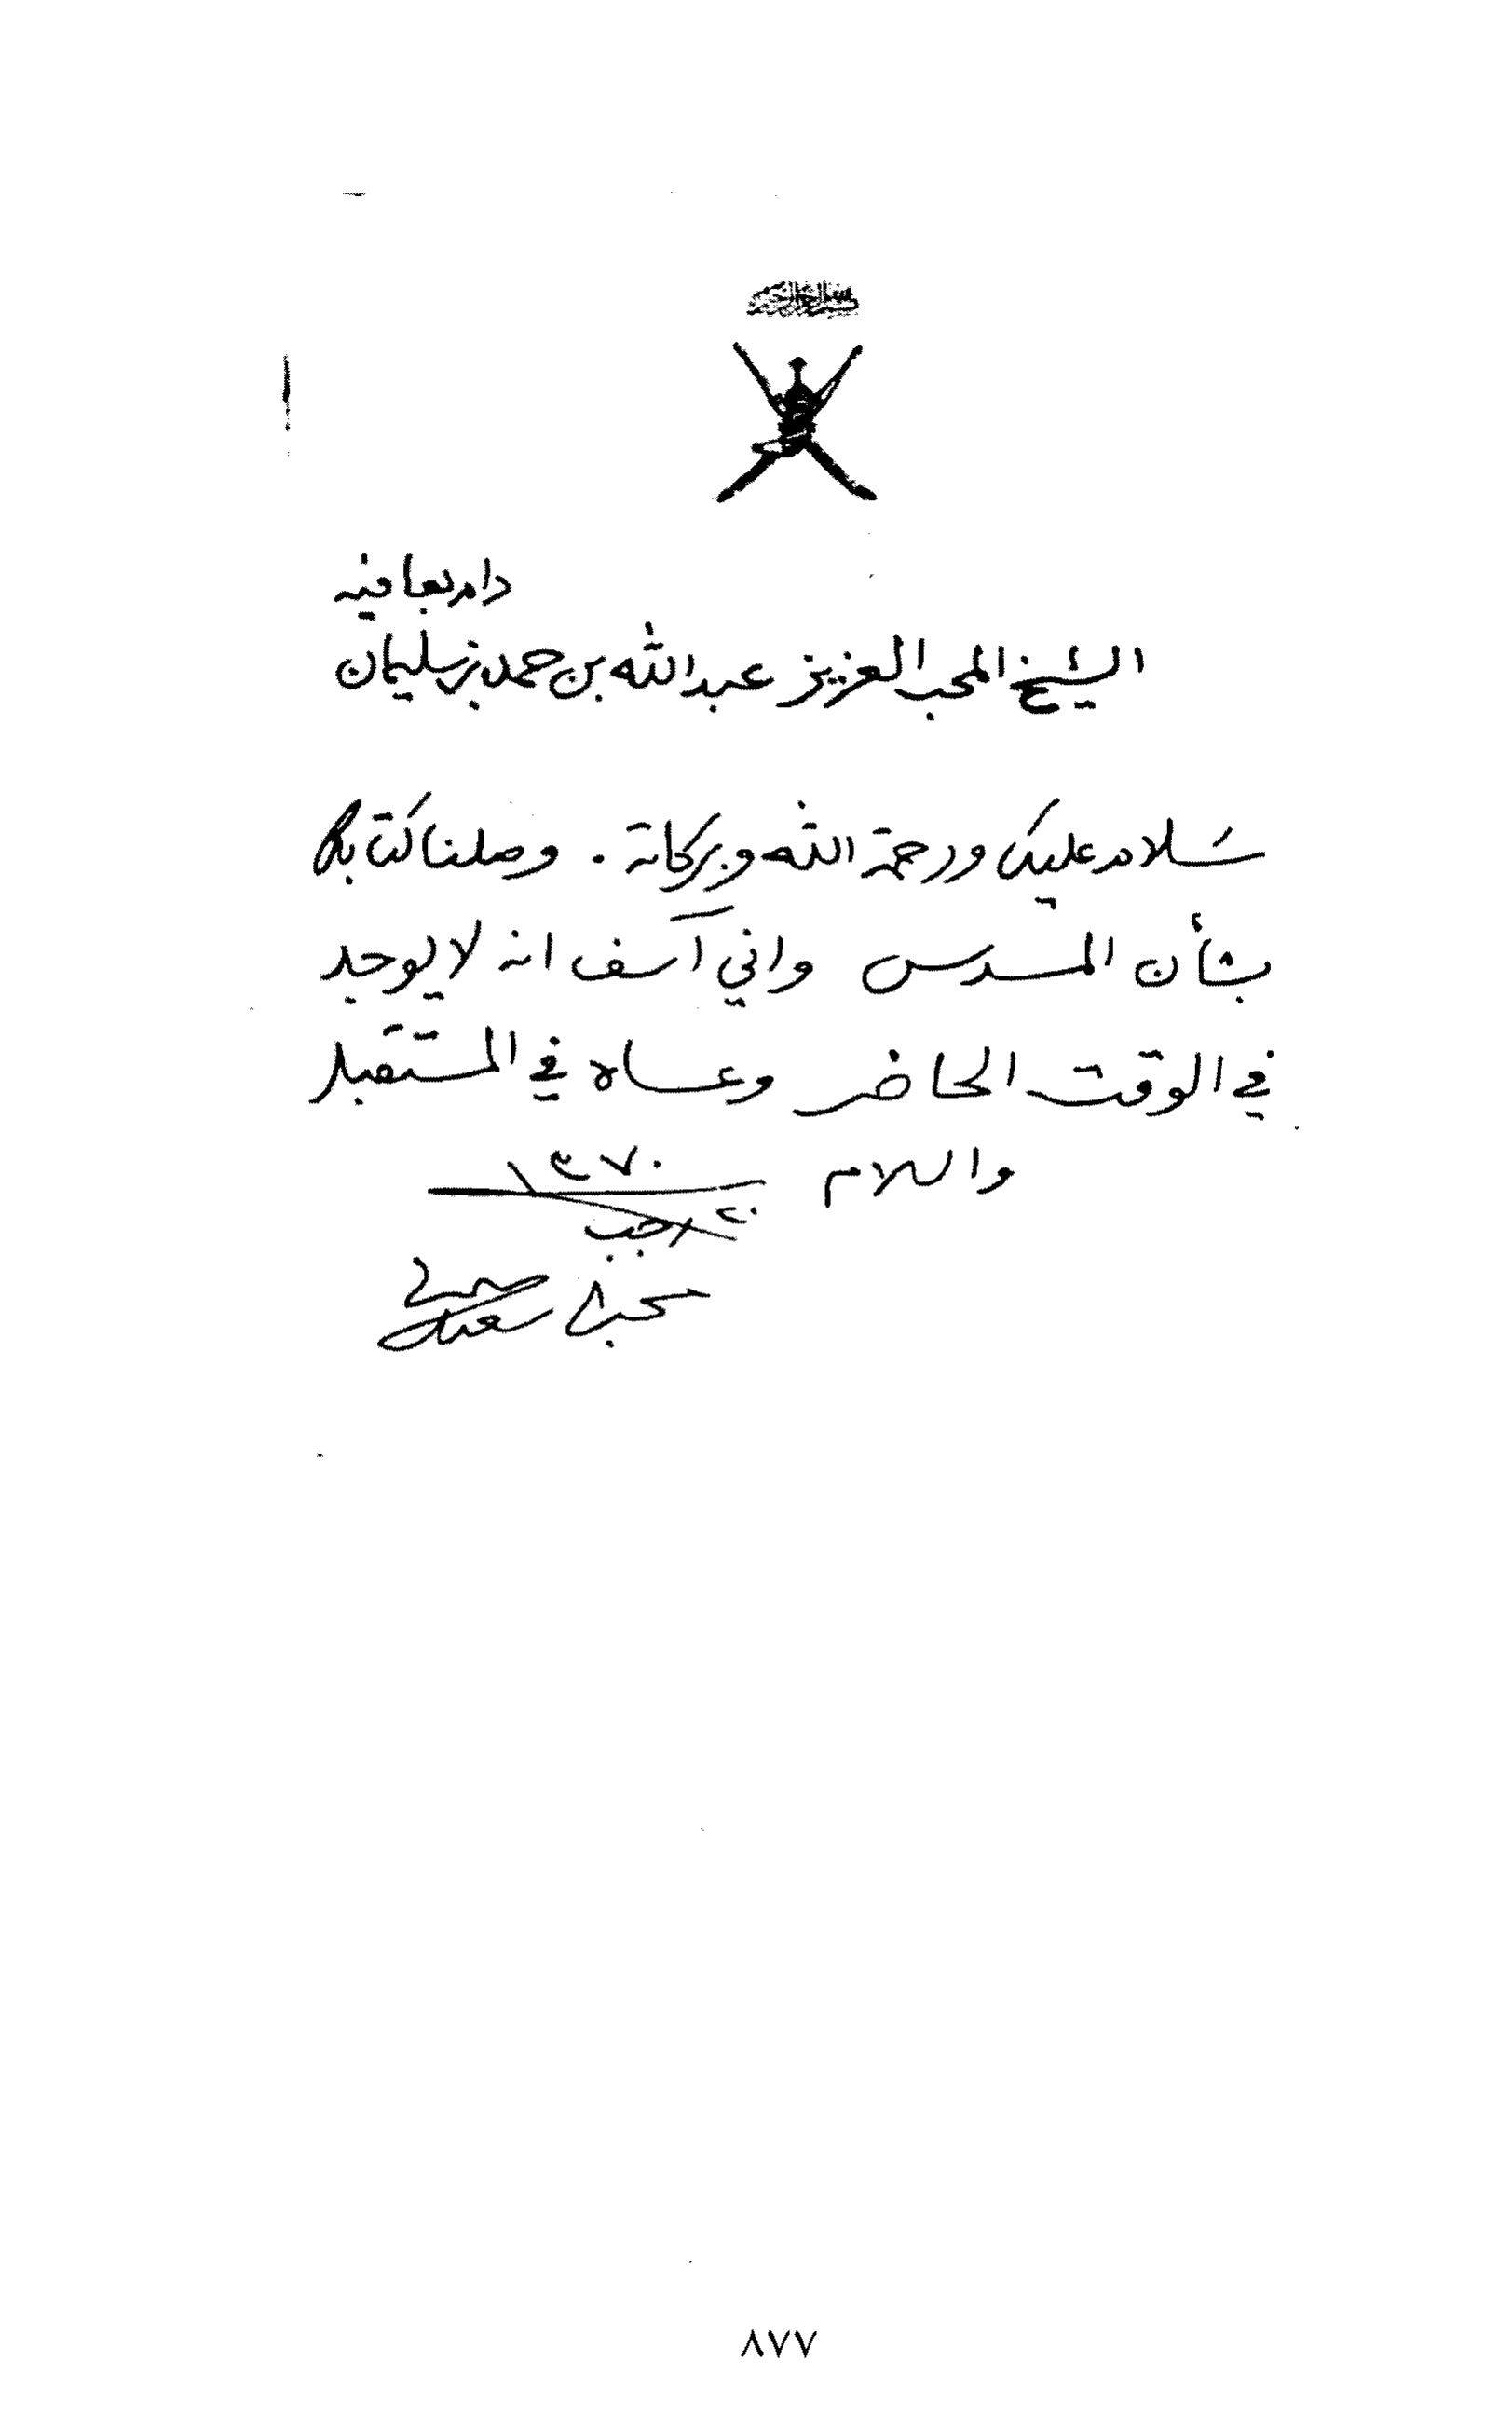 دام بعافيه
الشيخ المحب العزيز عبدالله بن حمد بن سليمان
سلام عليك ورحمة الله وبركاته . وصلنا كتابك
بشأن المسدس واني آسف انه لا يوجد
في الوقت الحاضر وعساه في المستقبل
والسلام ١٣٧٠
٢٠ رجب
محبك سعيد
٨٧٧